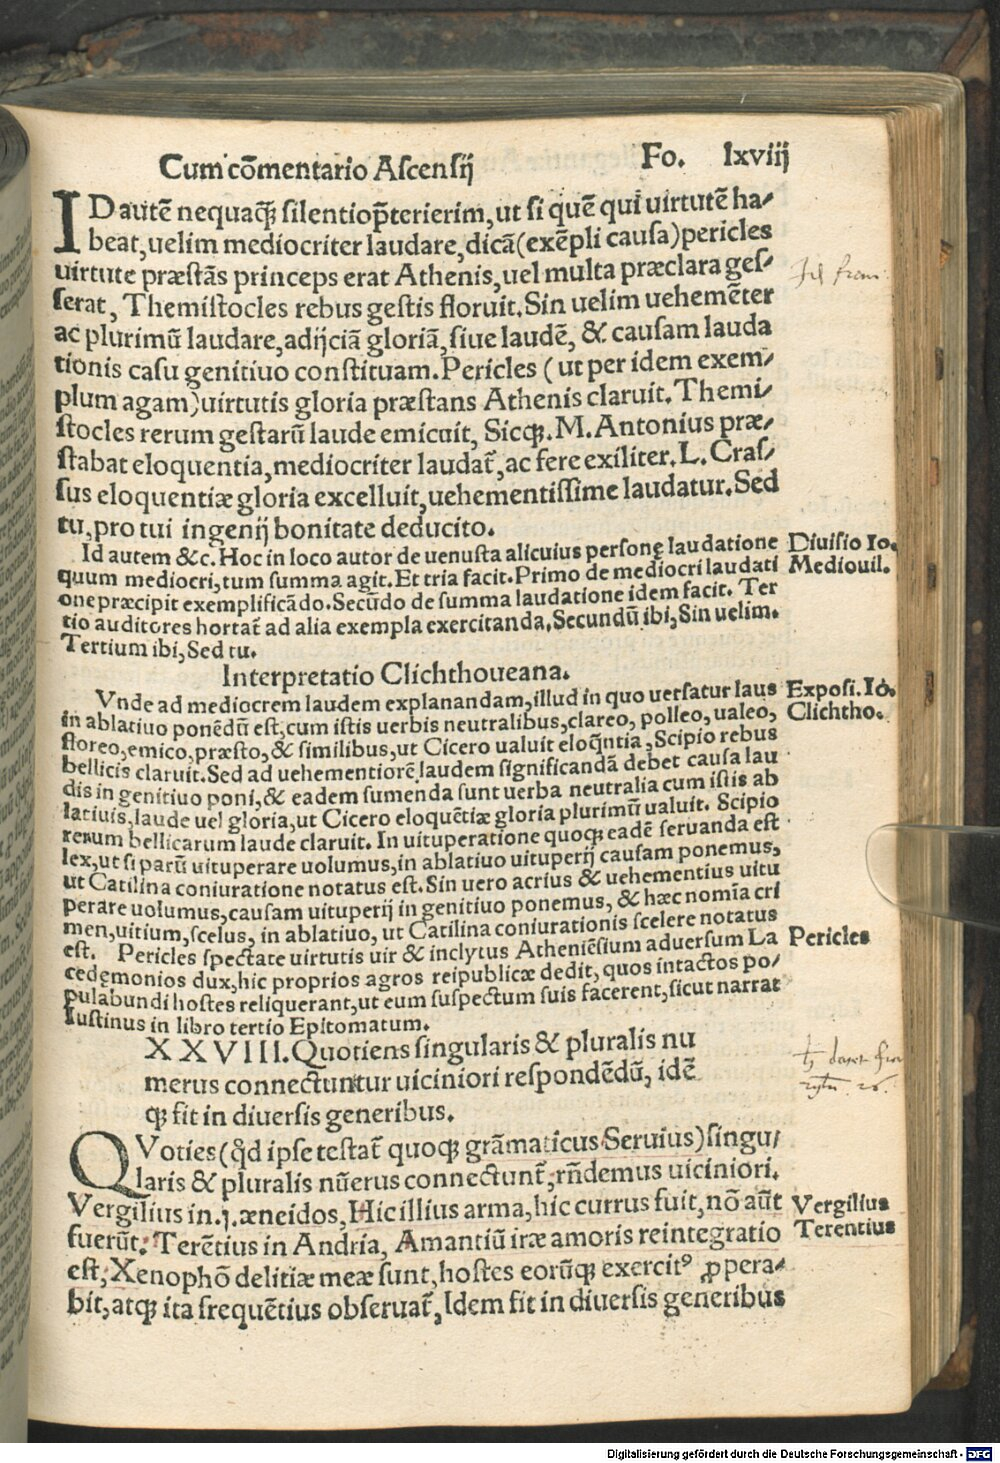 Cum cōmentario Ascensij Fo. lxviij
IDautē nequaq̄ꝫ silentiop̄terierim,ut si quē qui uirtutē ha/
beat,uelim mediocriter laudare,dicā(exēpli causa)pericles
uirtute præstās princeps erat Athenis,uel multa præclara ges/
serat, Themistocles rebus gestis floruit.Sin uelim uehemēter
ac plurimū laudare,adijciā gloriā,siue laudē, & causam lauda
tionis casu genitiuo constituam.Pericles (ut per idem exem/
plum agam)uirtutis gloria præstans Athenis claruit.Themi/
stocles rerum gestarū laude emicuit, Sicqꝫ.M.Antonius præ/
stabat eloquentia,mediocriter laudat̄,ac fere exiliter.L.Cras/
sus eloquentiæ gloria excelluit,uehementissime laudatur.Sed
tu,pro tui ingenij bonitate deducito.
Id autem &c.Hoc in loco autor de uenusta alicuius personę laudatione
quum mediocri,tum summa agit.Et tria facit.Primo de mediocri laudati
one præcipit exemplificādo.Secūdo de summa laudatione idem facit. Ter
tio auditores hortat̄ ad alia exempla exercitanda.Secundū ibi,Sin uelim.
Tertium ibi,Sed tu.
Diuisio Io.
Mediouil.
Interpretatio Clichthoueana.
Vnde ad mediocrem laudem explanandam,illud in quo uersatur laus
in ablatiuo ponēdū est,cum istis uerbis neutralibus,clareo, polleo, ualeo,
floreo,emico,præsto,& similibus,ut Cicero ualuit eloq̄ntia,Scipio rebus
bellicis claruit.Sed ad uehementiorē laudem significandā debet causa lau
dis in genitiuo poni,& eadem sumenda sunt uerba neutralia cum istis ab
latiuis,laude uel gloria,ut Cicero eloquētiæ gloria plurimū ualuit. Scipio
rerum bellicarum laude claruit. In uituperatione quoqꝫ eadē seruanda est
lex,ut si parū uituperare uolumus,in ablatiuo uituperij causam ponemus,
ut Catilina coniuratione notatus est.Sin uero acrius & uehementius uitu
perare uolumus,causam uituperij in genitiuo ponemus, & hæc nomīa cri
men,uitium,scelus, in ablatiuo, ut Catilina coniurationis scelere notatus
est. Pericles spectate uirtutis uir & inclytus Atheniēsium aduersum La
cedęmonios dux,hic proprios agros reipublicæ dedit, quos intactos po/
pulabundi hostes reliquerant,ut eum suspectum suis facerent,sicut narrat
Iustinus in libro tertio Epitomatum.
Exposi.Io.
Clichtho.
Pericles
XXVIII.Quotiens singularis & pluralis nu
merus connectuntur uiciniori respondēdū, idē
qꝫ fit in diuersis generibus.
QVoties(q̄d ipse testat̄ quoqꝫ grāmaticus Seruius)singu/
laris & pluralis nūerus connectunt̄,rn̄demus uiciniori.
Vergilius in.j.æneidos,Hic illius arma,hic currus fuit,nō aūt
fuerūt. Terētius in Andria, Amantiū iræ amoris reintegratio
est, Xenophō delitiæ meæ sunt,hostes eorūqꝫ exercitꝰ ꝓpera/
bit,atqꝫ ita frequētius obseruat̄,Idem fit in diuersis generibus
Vergilius
Terentius
Digitalisierung gefördert durch die Deutsche Forschungsgemeinschaft - DFG